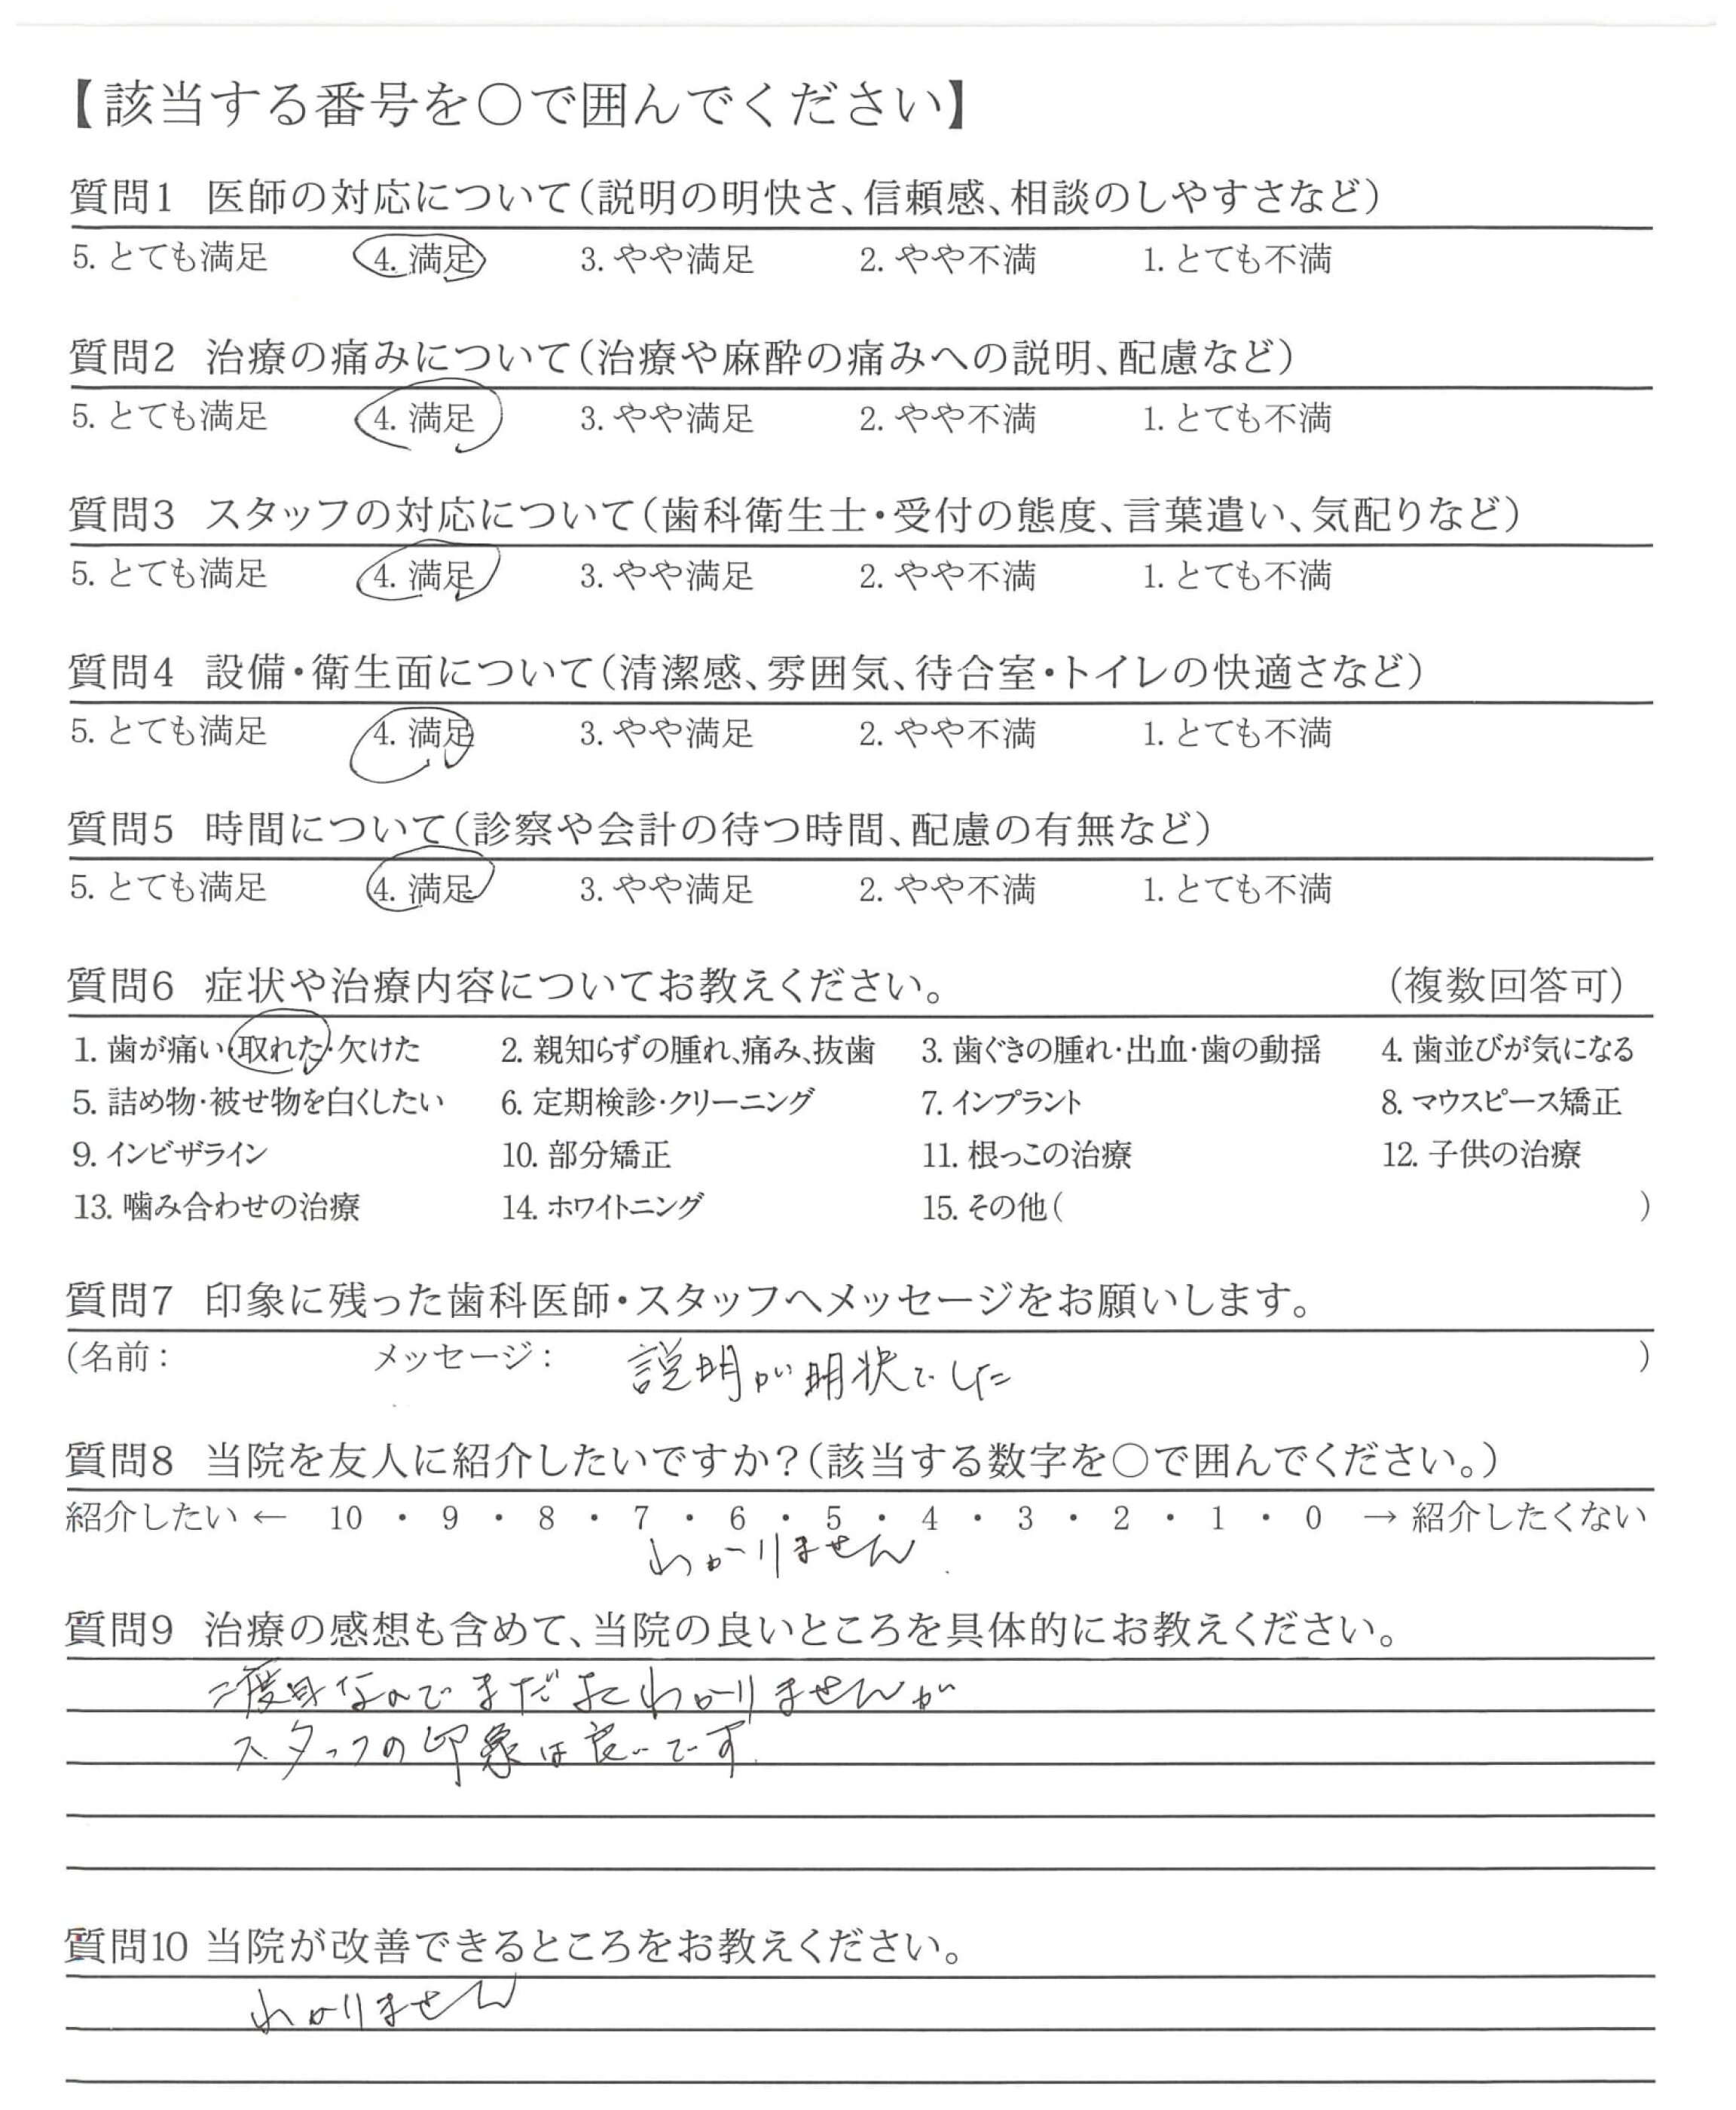 【該当する番号を○で囲んでください】
質問1 医師の対応について(説明の明快さ、信頼感、相談のしやすさなど)
5. とても満足 4. 満足 3. やや満足 2. やや不満 1. とても不満
質問2 治療の痛みについて(治療や麻酔の痛みへの説明、配慮など)
5. とても満足 4. 満足 3. やや満足 2. やや不満 1. とても不満
質問3 スタッフの対応について(歯科衛生士・受付の態度、言葉遣い、気配りなど)
5. とても満足 4. 満足 3. やや満足 2. やや不満 1. とても不満
質問4 設備・衛生面について(清潔感、雰囲気、待合室・トイレの快適さなど)
5. とても満足 4. 満足 3. やや満足 2. やや不満 1. とても不満
質問5 時間について(診察や会計の待つ時間、配慮の有無など)
5. とても満足 4. 満足 3. やや満足 2. やや不満 1. とても不満
質問6 症状や治療内容についてお教えください。 (複数回答可)
1. 歯が痛い・取れた・欠けた 2. 親知らずの腫れ、痛み、抜歯 3. 歯ぐきの腫れ・出血・歯の動揺 4. 歯並びが気になる
5. 詰め物・被せ物を白くしたい 6. 定期検診・クリーニング 7. インプラント 8. マウスピース矯正
9. インビザライン 10. 部分矯正 11. 根っこの治療 12. 子供の治療
13. 噛み合わせの治療 14. ホワイトニング 15. その他( )
質問7 印象に残った歯科医師・スタッフへメッセージをお願いします。
(名前: メッセージ: 説明が明状でした )
質問8 当院を友人に紹介したいですか?(該当する数字を○で囲んでください。)
紹介したい ← 10 ・ 9 ・ 8 ・ 7 ・ 6 ・ 5 ・ 4 ・ 3 ・ 2 ・ 1 ・ 0 → 紹介したくない
わかりません.
質問9 治療の感想も含めて、当院の良いところを具体的にお教えください。
二度目なのでまだよくわかりませんが
スタッフの印象は良いです.
質問10 当院が改善できるところをお教えください。
わかりません